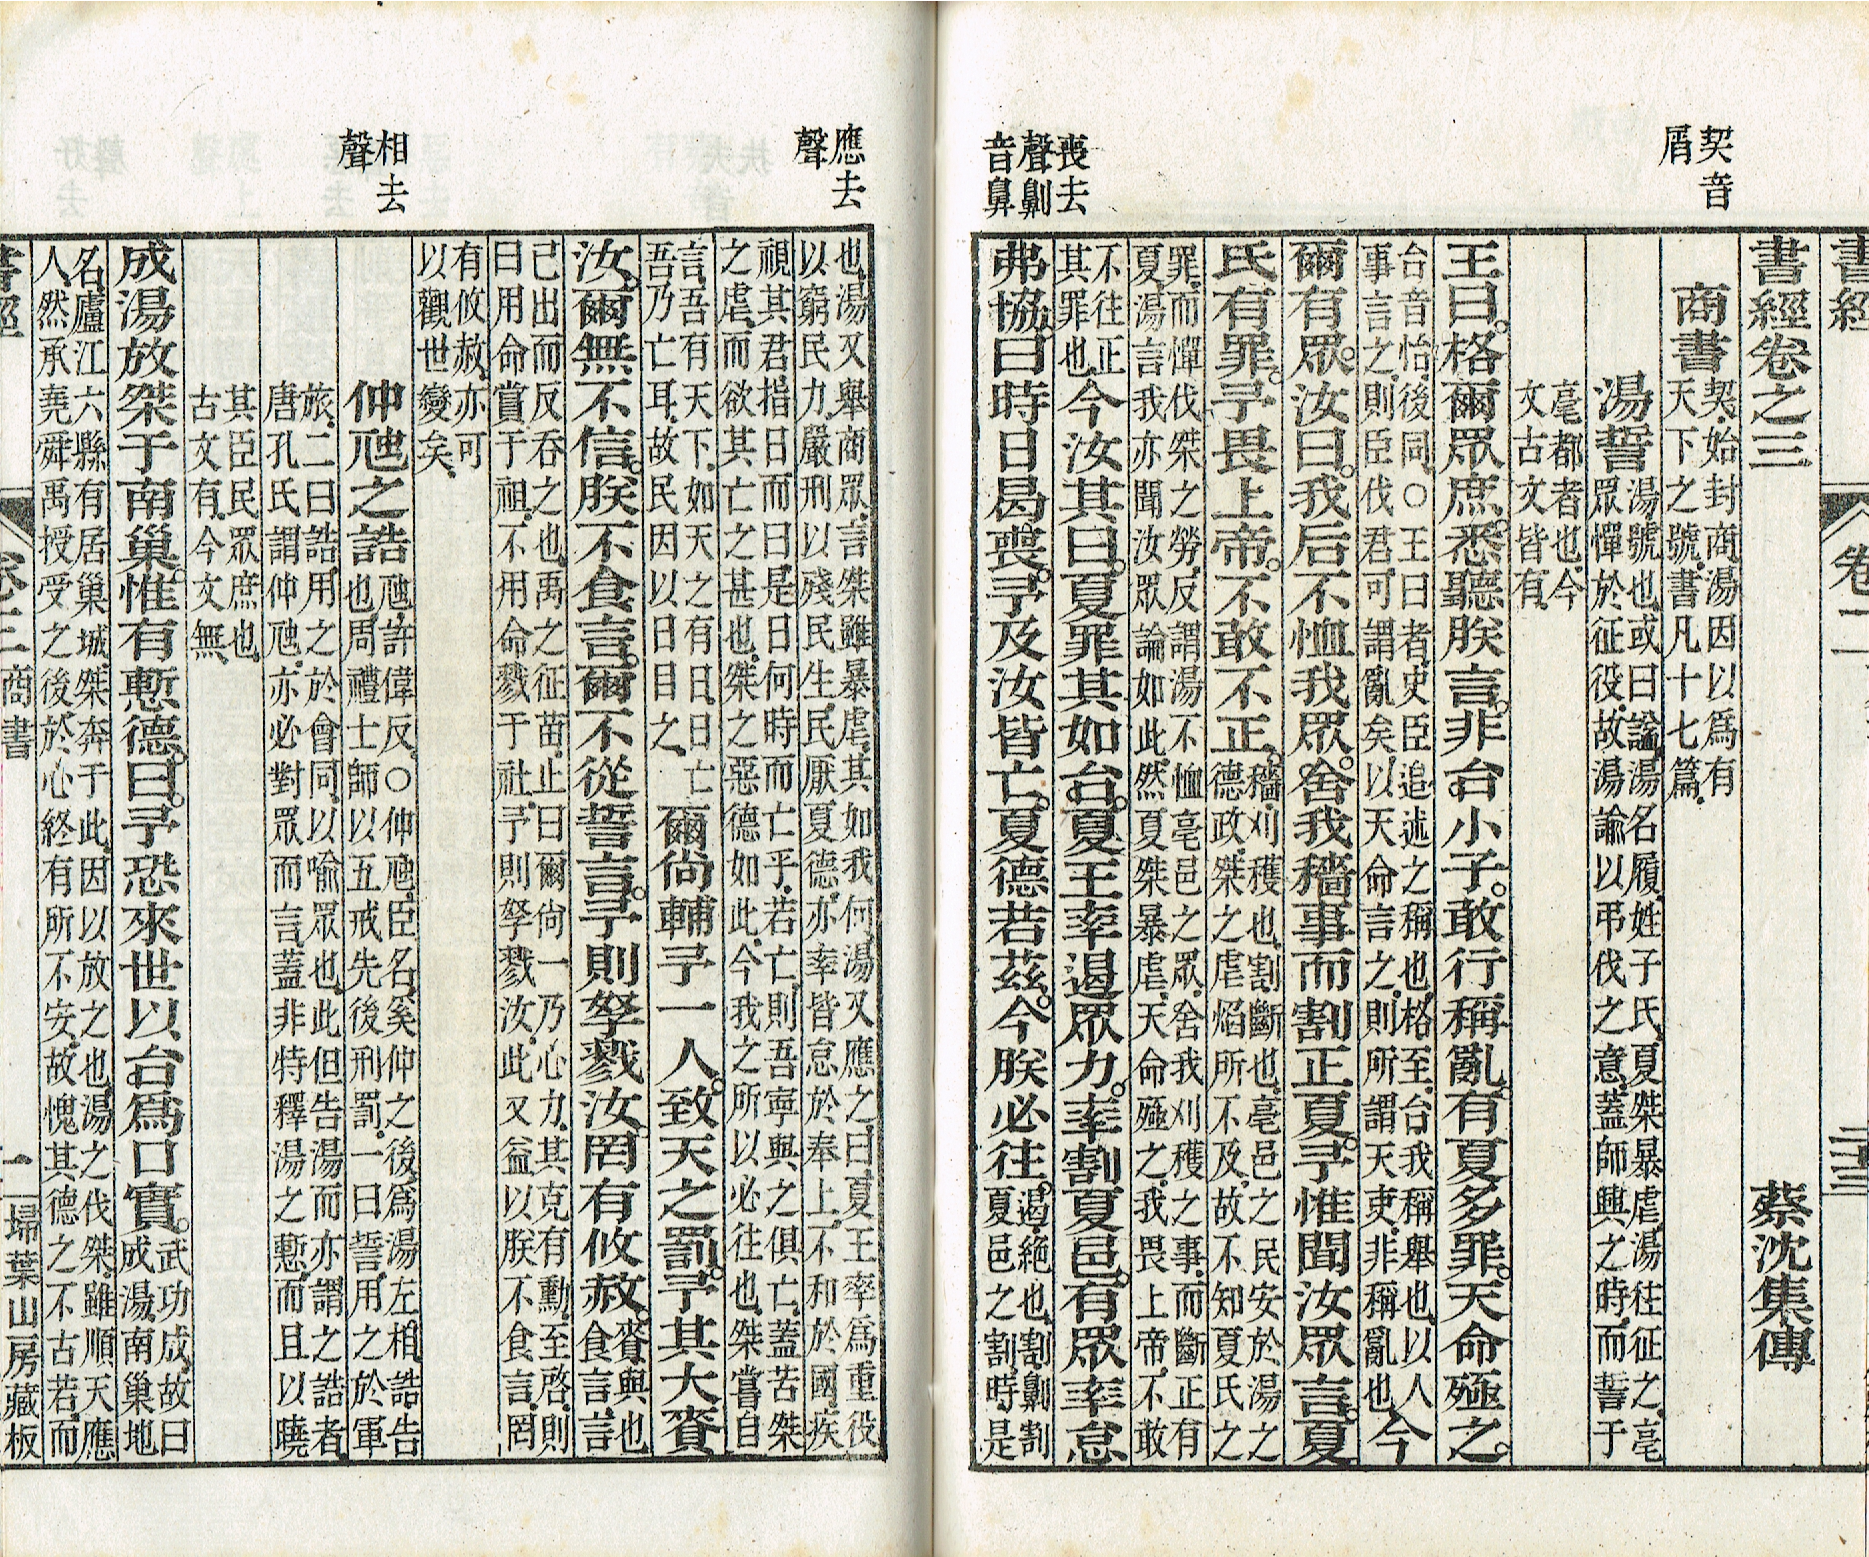 契音
屑
喪去
聲劓
音鼻
書經
卷二
二十三
書經卷之三
蔡沈集傳
商書
契始封商湯因以爲有
天下之號書凡十七篇
湯誓
湯號也或曰諡湯名履姓子氏夏桀暴虐湯往征之亳
眾憚於征役故湯諭以弔伐之意蓋師興之時而誓于
亳都者也今
文古文皆有
王曰格爾眾庶悉聽朕言非台小子敢行稱亂有夏多罪天命殛之
台音怡後同○王曰者史臣追述之稱也格至台我稱舉也以人
事言之則臣伐君可謂亂矣以天命言之則所謂天吏非稱亂也
今
爾有眾汝曰我后不恤我眾舍我穡事而割正夏予惟聞汝眾言夏
氏有罪予畏上帝不敢不正
穡刈穫也割斷也亳邑之民安於湯之
德政桀之虐焰所不及故不知夏氏之
罪而憚伐桀之勞反謂湯不恤亳邑之眾舍我刈穫之事而斷正有
夏湯言我亦聞汝眾論如此然夏桀暴虐天命殛之我畏上帝不敢
不往正
其罪也
今汝其曰夏罪其如台夏王率遏眾力率割夏邑有眾率怠
弗協曰時日曷喪予及汝皆亡夏德若茲今朕必往
遏絕也割劓割
夏邑之割時是
應去
聲
相去
聲
也湯又舉商眾言桀雖暴虐其如我何湯又應之曰夏王率爲重役
以窮民力嚴刑以殘民生民厭夏德亦率皆怠於奉上不和於國疾
視其君指日而曰是日何時而亡乎若亡則吾寧與之俱亡蓋苦桀
之虐而欲其亡之甚也桀之惡德如此今我之所以必往也桀嘗自
言吾有天下如天之有日日亡
吾乃亡耳故民因以日目之
爾尚輔予一人致天之罰予其大賚
汝爾無不信朕不食言爾不從誓言予則孥戮汝罔有攸赦
賚與也
食言言
已出而反吞之也禹之征苗止曰爾尚一乃心力其克有勳至啓則
曰用命賞于祖不用命戮于社予則孥戮汝此又益以朕不食言罔
有攸赦亦可
以觀世變矣
仲虺之誥
虺許偉反○仲虺臣名奚仲之後爲湯左相誥告
也周禮士師以五戒先後刑罰一曰誓用之於軍
旅二曰誥用之於會同以喻眾也此但告湯而亦謂之誥者
唐孔氏謂仲虺亦必對眾而言蓋非特釋湯之慙而且以曉
其臣民眾庶也
古文有今文無
成湯放桀于南巢惟有慙德曰予恐來世以台爲口實
武功成故曰
成湯南巢地
名廬江六縣有居巢城桀奔于此因以放之也湯之伐桀雖順天應
人然承堯舜禹授受之後於心終有所不安故愧其德之不古若而
書經
卷三 商書
一
掃葉山房藏板